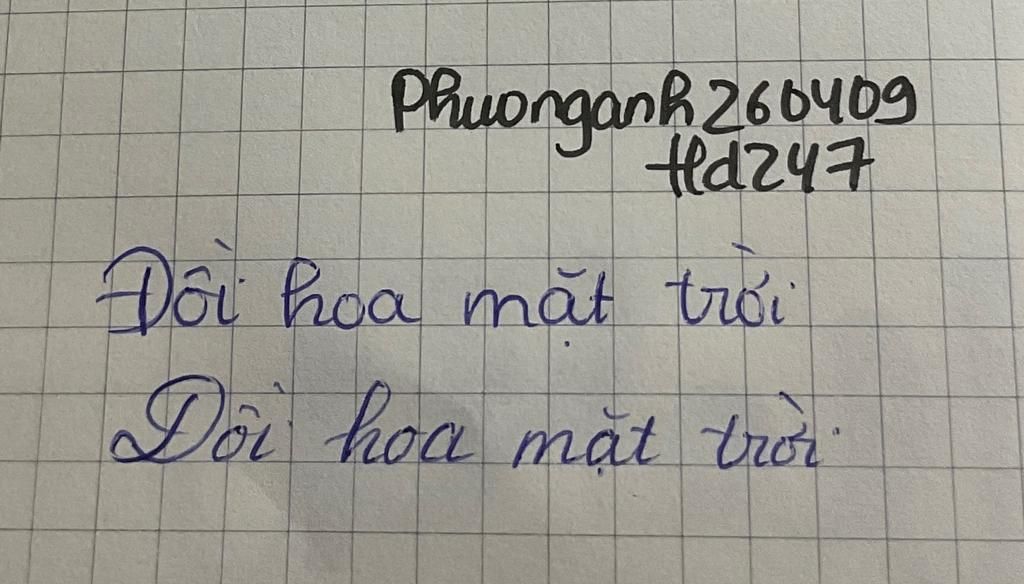 Phuonganh260409
Hd247
Đồi hoa mặt trời
Đồi hoa mặt trời